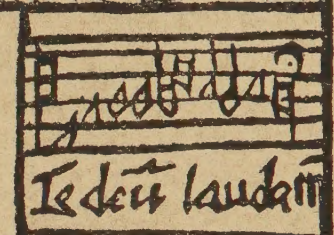 Te deū laudam̄